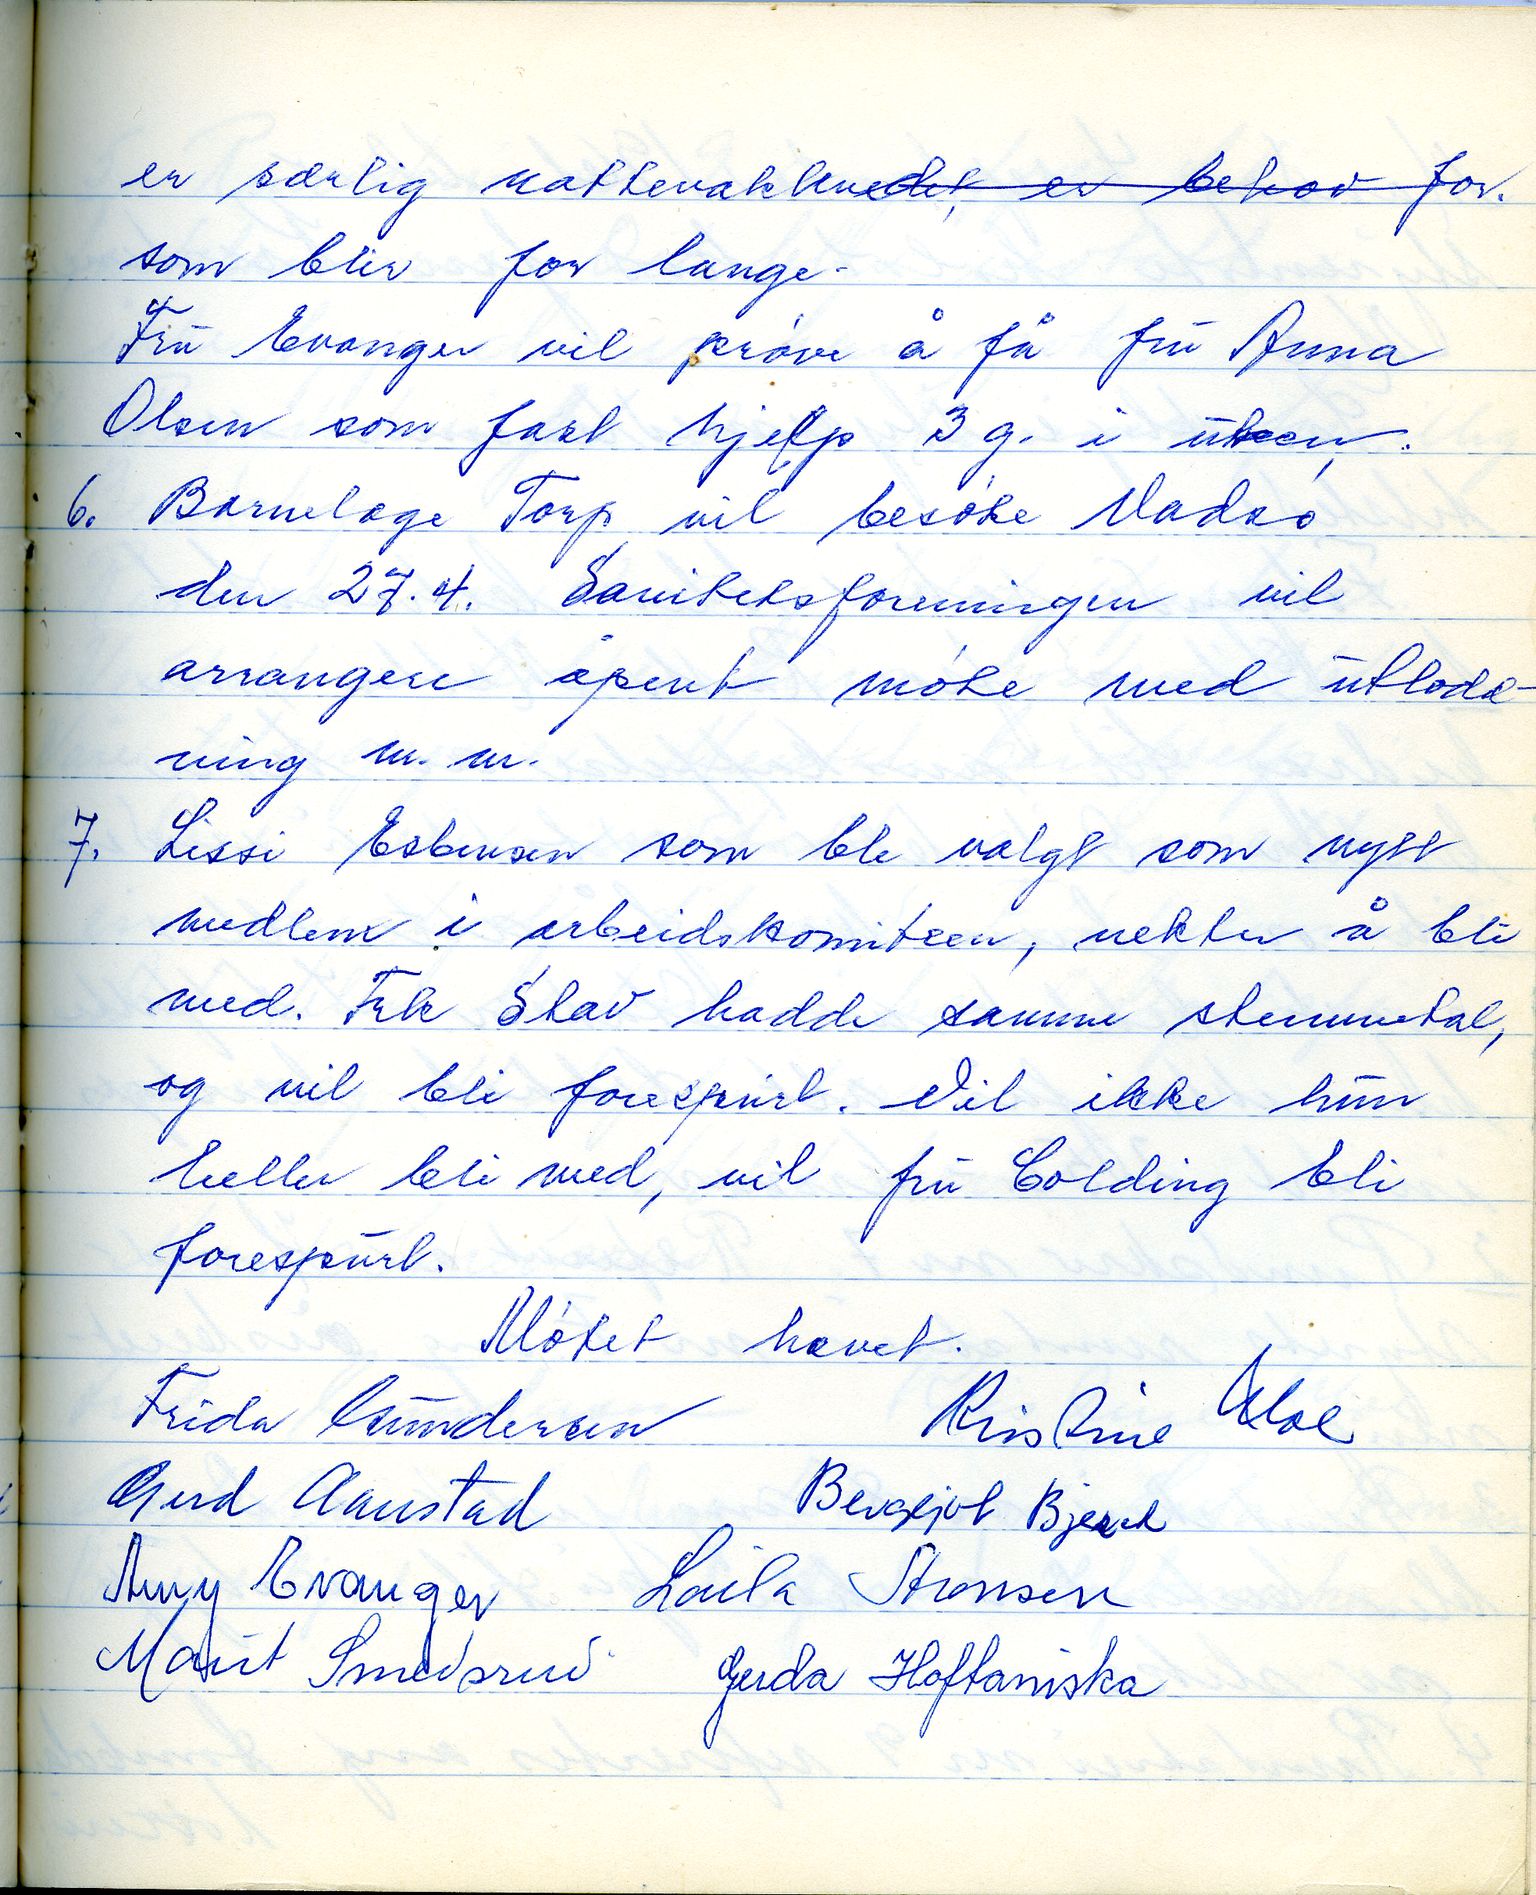 er særlig nattevaktene ~~det er behov for.~~
som blir for lange.
Fru Evanger vil prøve å få fru Anna
Olsen som fast hjelp 3 g. i uken.
6. Barnelege Torp vil besøke Vadsø
den 27.4. Sanitetsforeningen vil
arrangere åpent møte med utlodd-
ning m.m.
7. Lissi Esbensen som ble valgt som nytt
medlem i arbeidskomiteen, nekter å bli
med. Frk Stav hadde samme stemmetal,
og vil bli forespurt. Vil ikke hun
heller bli med, vil fru Colding bli
forespurt.
Møtet hevet.
Frida Gundersen Kristine Moe
Gerd Aanstad Bergljot Bjerck
Amy Evanger Laila Aronsen
Marit Smedsrud Gerda Hoftaniska